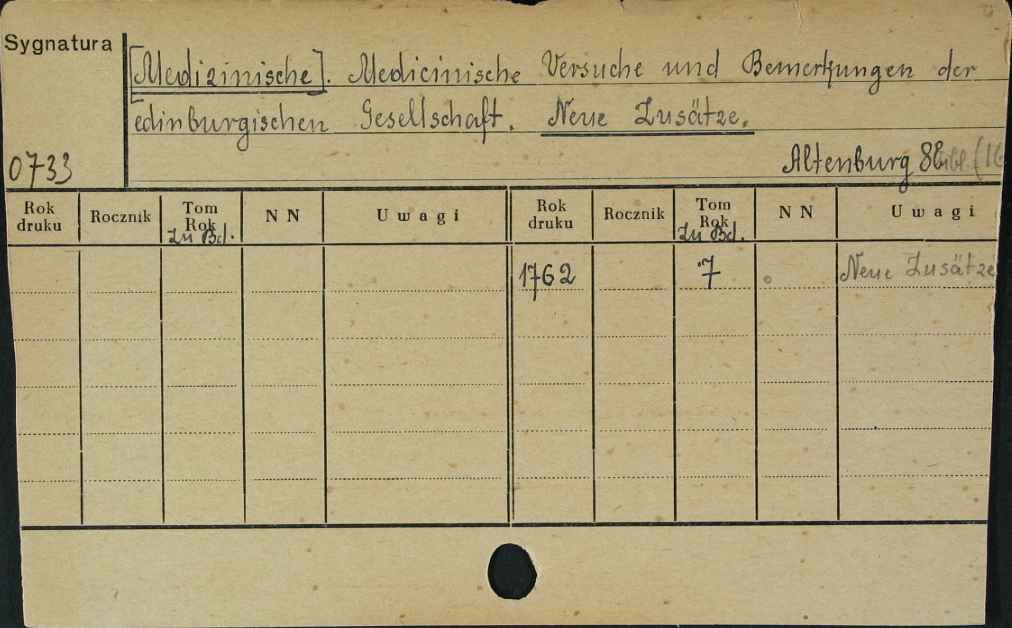 Sygnatura
[Medizinische]. Medicinische Versuche und Bemerkungen der
edinburgischen Gesellschaft. Neue Zusätze.
0733 Altenburg 8°
Rok druku Rocznik Tom Rok Zu Bd. N N Uwagi Rok druku Rocznik Tom Rok Zu Bd. N N Uwagi
1762 7 Neue Zusätze